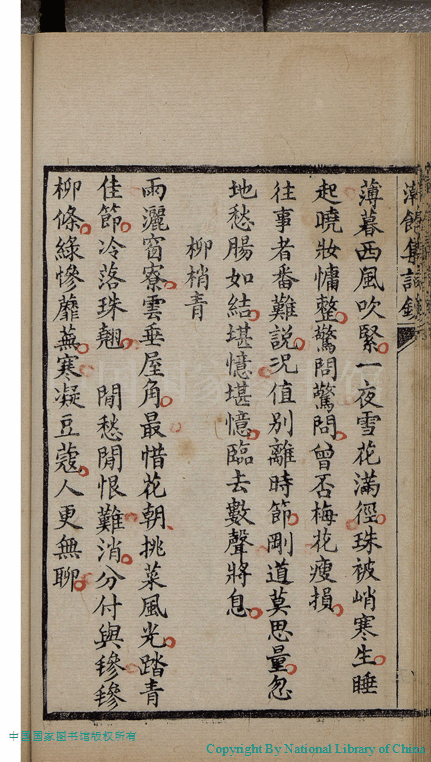 薄暮西風吹緊一夜雪花滿徑珠被峭寒生睡
起曉妝慵整驚問驚問曾否梅花瘦損
往事者番難説况值別離時節剛道莫思量忽
地愁腸如結堪憶堪憶臨去數聲將息
柳梢青
雨灑窗寮雲垂屋角最惜花朝挑菜風光踏青
佳節冷落珠翹 閒愁閒恨難消分付與毿毿
柳條綠慘蘼蕪寒凝豆蔻人更無聊
中国国家图书馆版权所有
Copyright By National Library of China